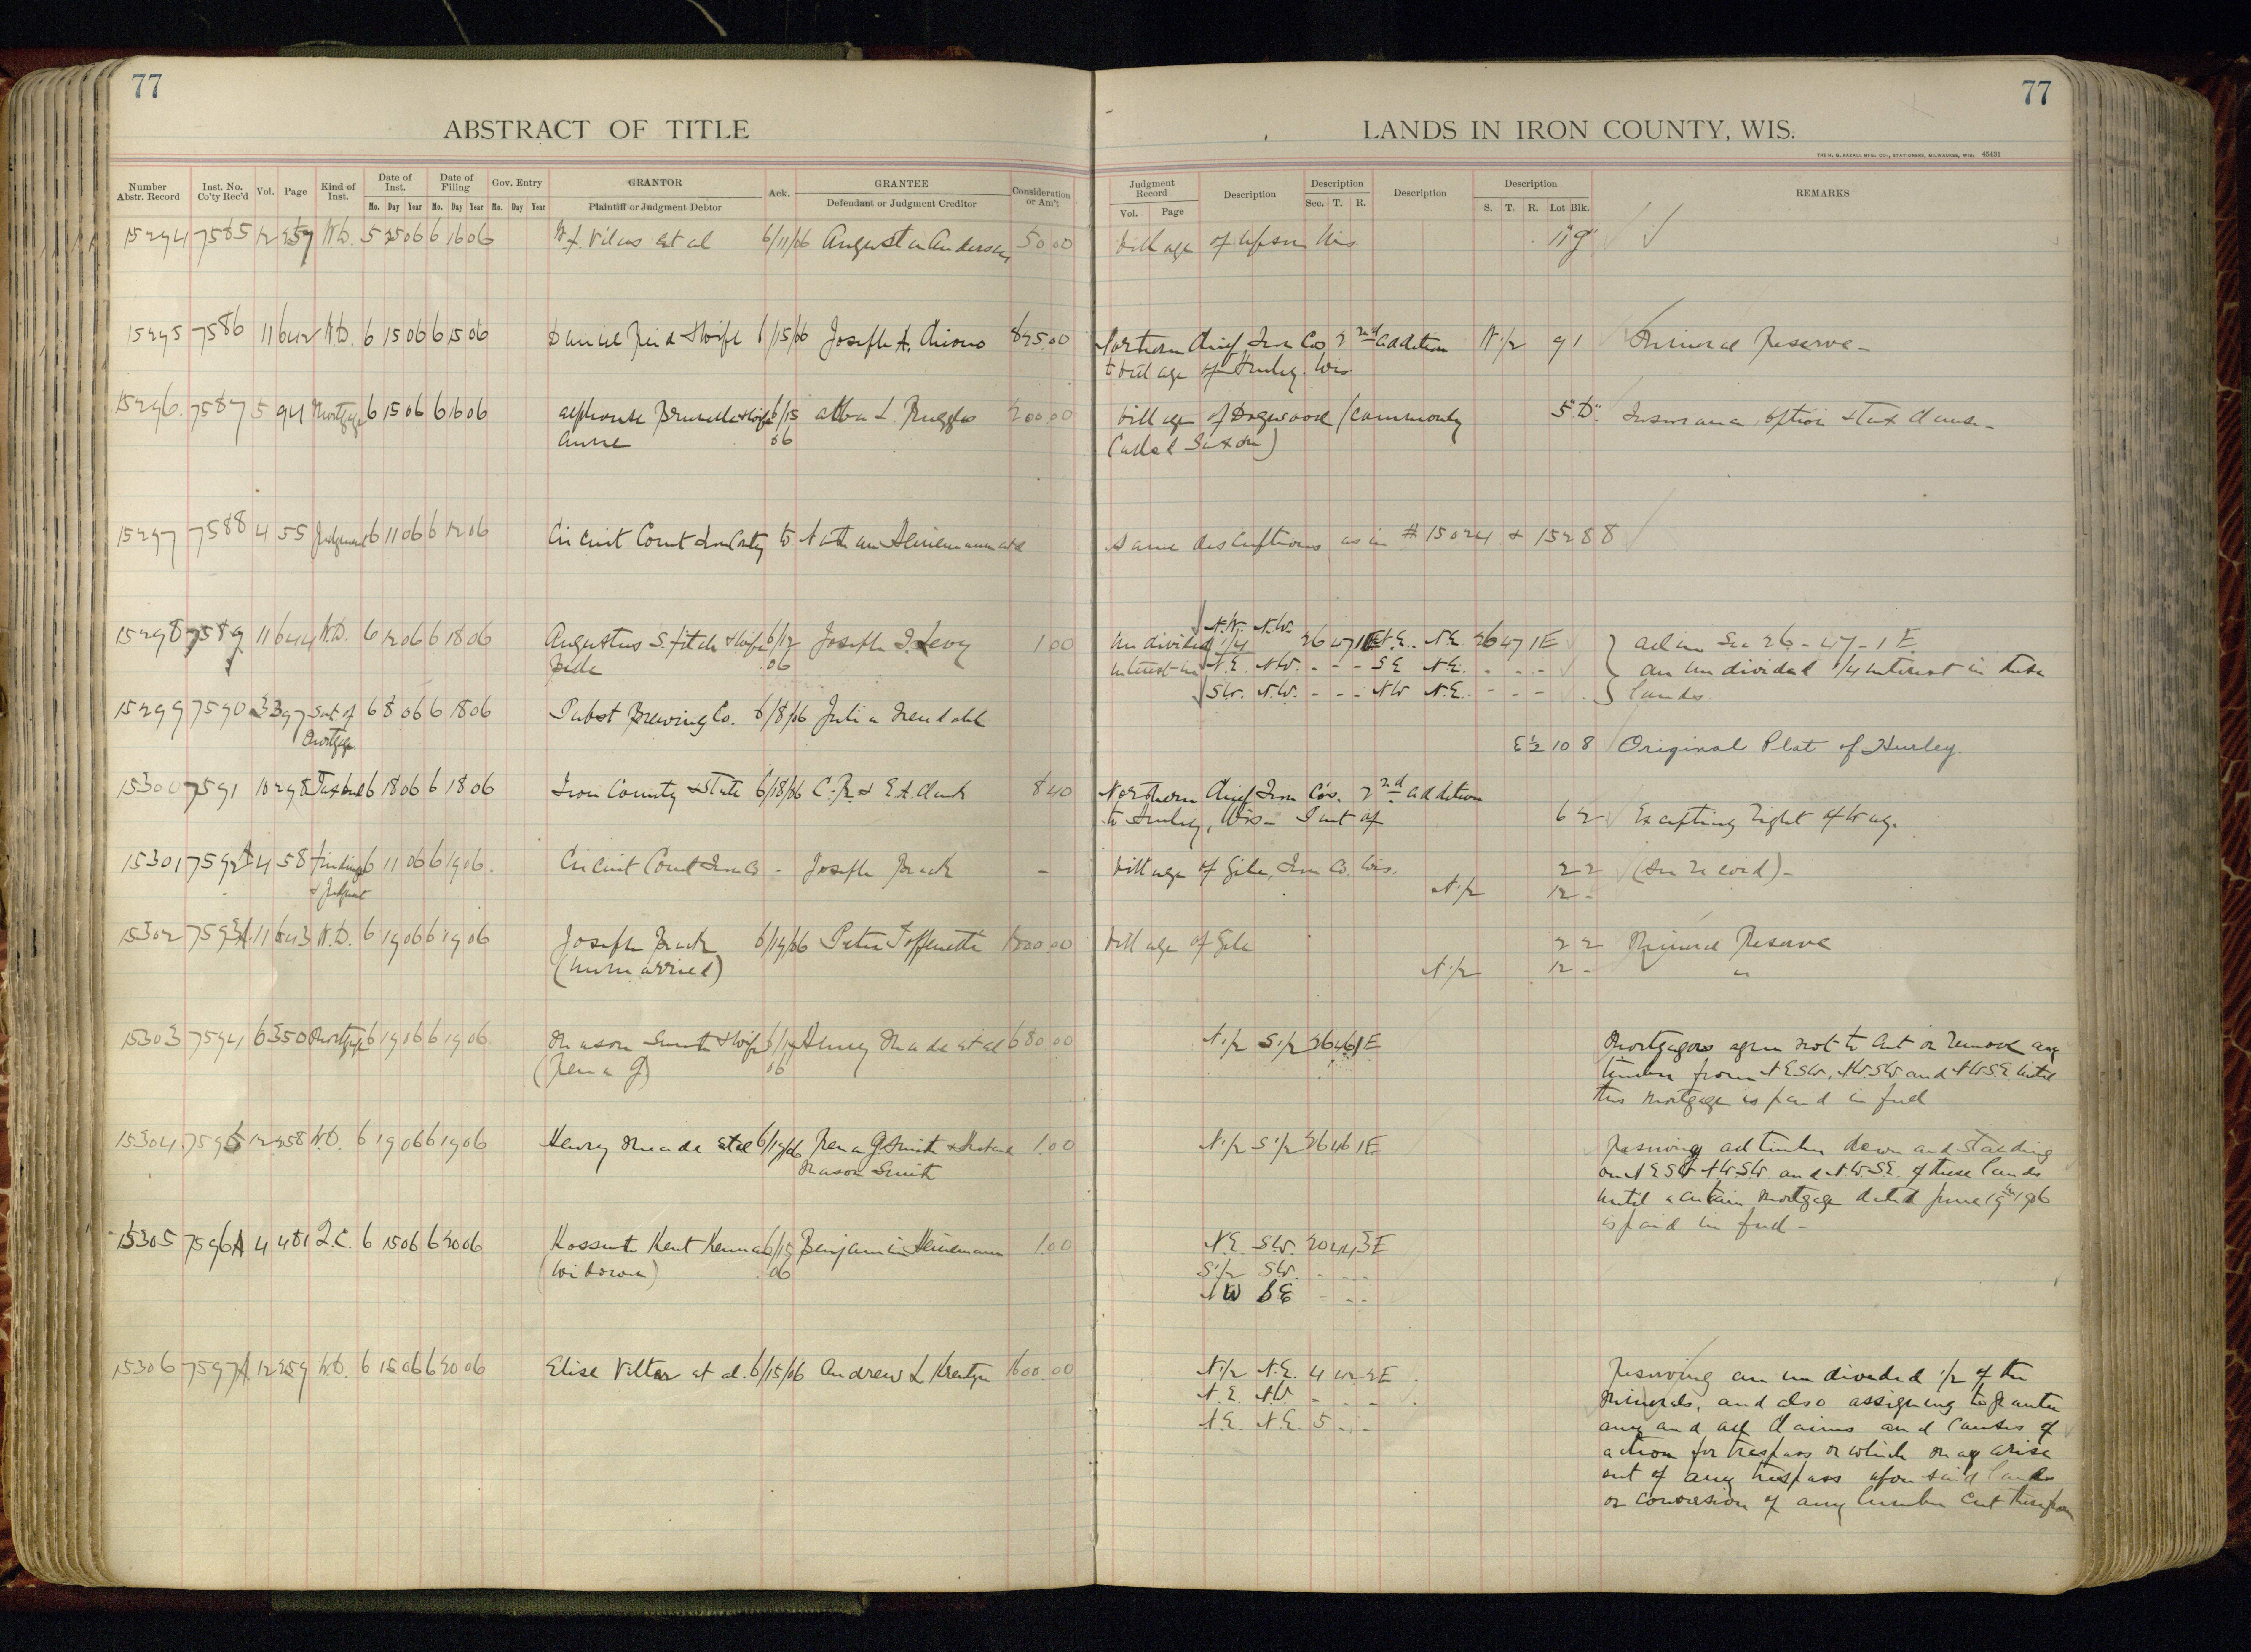 77
ABSTRACT OF TITLE
Number Abstr. Record Inst. No. Co'ty Rec'd Vol. Page Kind of Inst. Date of Inst. Mo. Day Year Date of Filing Mo. Day Year Gov. Entry Mo. Day Year GRANTOR Plaintiff or Judgment Debtor Ack. GRANTEE Defendant or Judgment Creditor Consideration or Am't
15294 7585 12 257 W.D. 5 25 06 6 16 06 W. F. Vilas et al 6/11/06 Augusta Anderson 50.00
15295 7586 11 642 W.D. 6 15 06 6 15 06 Daniel Reid & Wife 6/15/06 Joseph A. 875.00
15296 7587 5 94 Mortgage 6 15 06 6 16 06 Alphonse Brunelle & Wife 6/15 Alba L. Ruggles 200.00
Anne 06
15297 7588 4 55 Judgment 6 11 06 6 12 06 Circuit Court Iron Cnty to Nathan Heinemann et al
15298 7589 11 644 W.D. 6 12 06 6 18 06 Augustus S. Fitch & Wife 6/12 Joseph I. Levy 1 00
Belle 06
15299 7590 3 397 Sat of 6 8 06 6 18 06 Pabst Brewing Co. 6/8/06 Julia
Mortgage
15300 7591 10 298 Tax Deed 6 18 06 6 18 06 Iron County & State 6/18/06 C. R. & E. A. Clark 8 40
15301 7592 4 58 Findings 6 11 06 6 19 06 Circuit Court Iron Co - Joseph -
& Judgment
15302 7593 11 643 W.D. 6 19 06 6 19 06 Joseph 6/19/06 Peter Toffenetti 00.00
(Unmarried)
15303 7594 6 350 Mortgage 6 19 06 6 19 06 Mason Smith & Wife 6/19 Henry Meade et al 680.00
(Rena G) 06
15304 7595 12 258 W.D. 6 19 06 6 19 06 Henry Meade et al 6/19/06 Rena G Smith & Husband 1.00
Mason Smith
15305 7596 A 4 481 Q.C. 6 15 06 6 20 06 Kossuth Kent Kennan 6/15 Benjamin Heinemann 1.00
(Widower) 06
15306 7597 A 12 259 W.D. 6 15 06 6 20 06 Elise Vilter et al. 6/15/06 Andrew L Kreutzer 1600.00
77
LANDS IN IRON COUNTY, WIS.
THE H. G. RAZALL MFG. CO., STATIONERS, MILWAUKEE, WIS. 45431
Judgment Record Vol. Page Description Description Sec. T. R. Description Description S. T. R. Lot Blk. REMARKS
Village of Upson Wis 11 "9"
Northern Chief Iron Cos 2nd Addition N 1/2 9 1 Mineral Reserve -
to Village of Hurley Wis.
Village of Dogwood (commonly 5 "D". Insurance, option & tax clause -
Called Saxon)
Same descriptions as in # 15024 & 15288
N.W. N.W.
Undivided 1/4 26 47 1E N.E. N.E. 26 47 1E All in Sec 26 - 47 - 1 E
interest in N.E. N.W. - - - S E N.E. - - - An undivided 1/4 interest in these
S.W. N.W. - - - N W N.E. - - - lands.
E 1/2 10 8 Original Plat of Hurley.
Northern Chief Iron Co's. 2nd Addition
to Hurley, Wis - Part of 6 2 Excepting right of way.
Village of Gile, Iron Co. Wis. 2 2 (See record) -
N 1/2 12 -
Village of Gile 2 2 Mineral Reserve
N 1/2 12 - "
N 1/2 S 1/2 26 46 1E Mortgagors agree not to cut or remove any
timber from N E SW, N.W. SW and N W S.E. until
this mortgage is paid in full
N 1/2 S 1/2 26 46 1E Reserving all timber down and standing
on N E SW N W S.W. and N.W. S.E. of these lands
until a certain mortgage dated June 19th 1906
is paid in full -
N.E. S.W. 20 44 3E
S 1/2 SW. - - -
N W S E - - -
N 1/2 N.E. 4 42 2E Reserving an undivided 1/2 of the
N.E. N.W. - - - Minerals, and also assigning to grantee
N.E. N.E. 5 - - any and all claims and causes of
action for trespass or which may arise
out of any trespass upon said lands
or conversion of any lumber cut therefrom